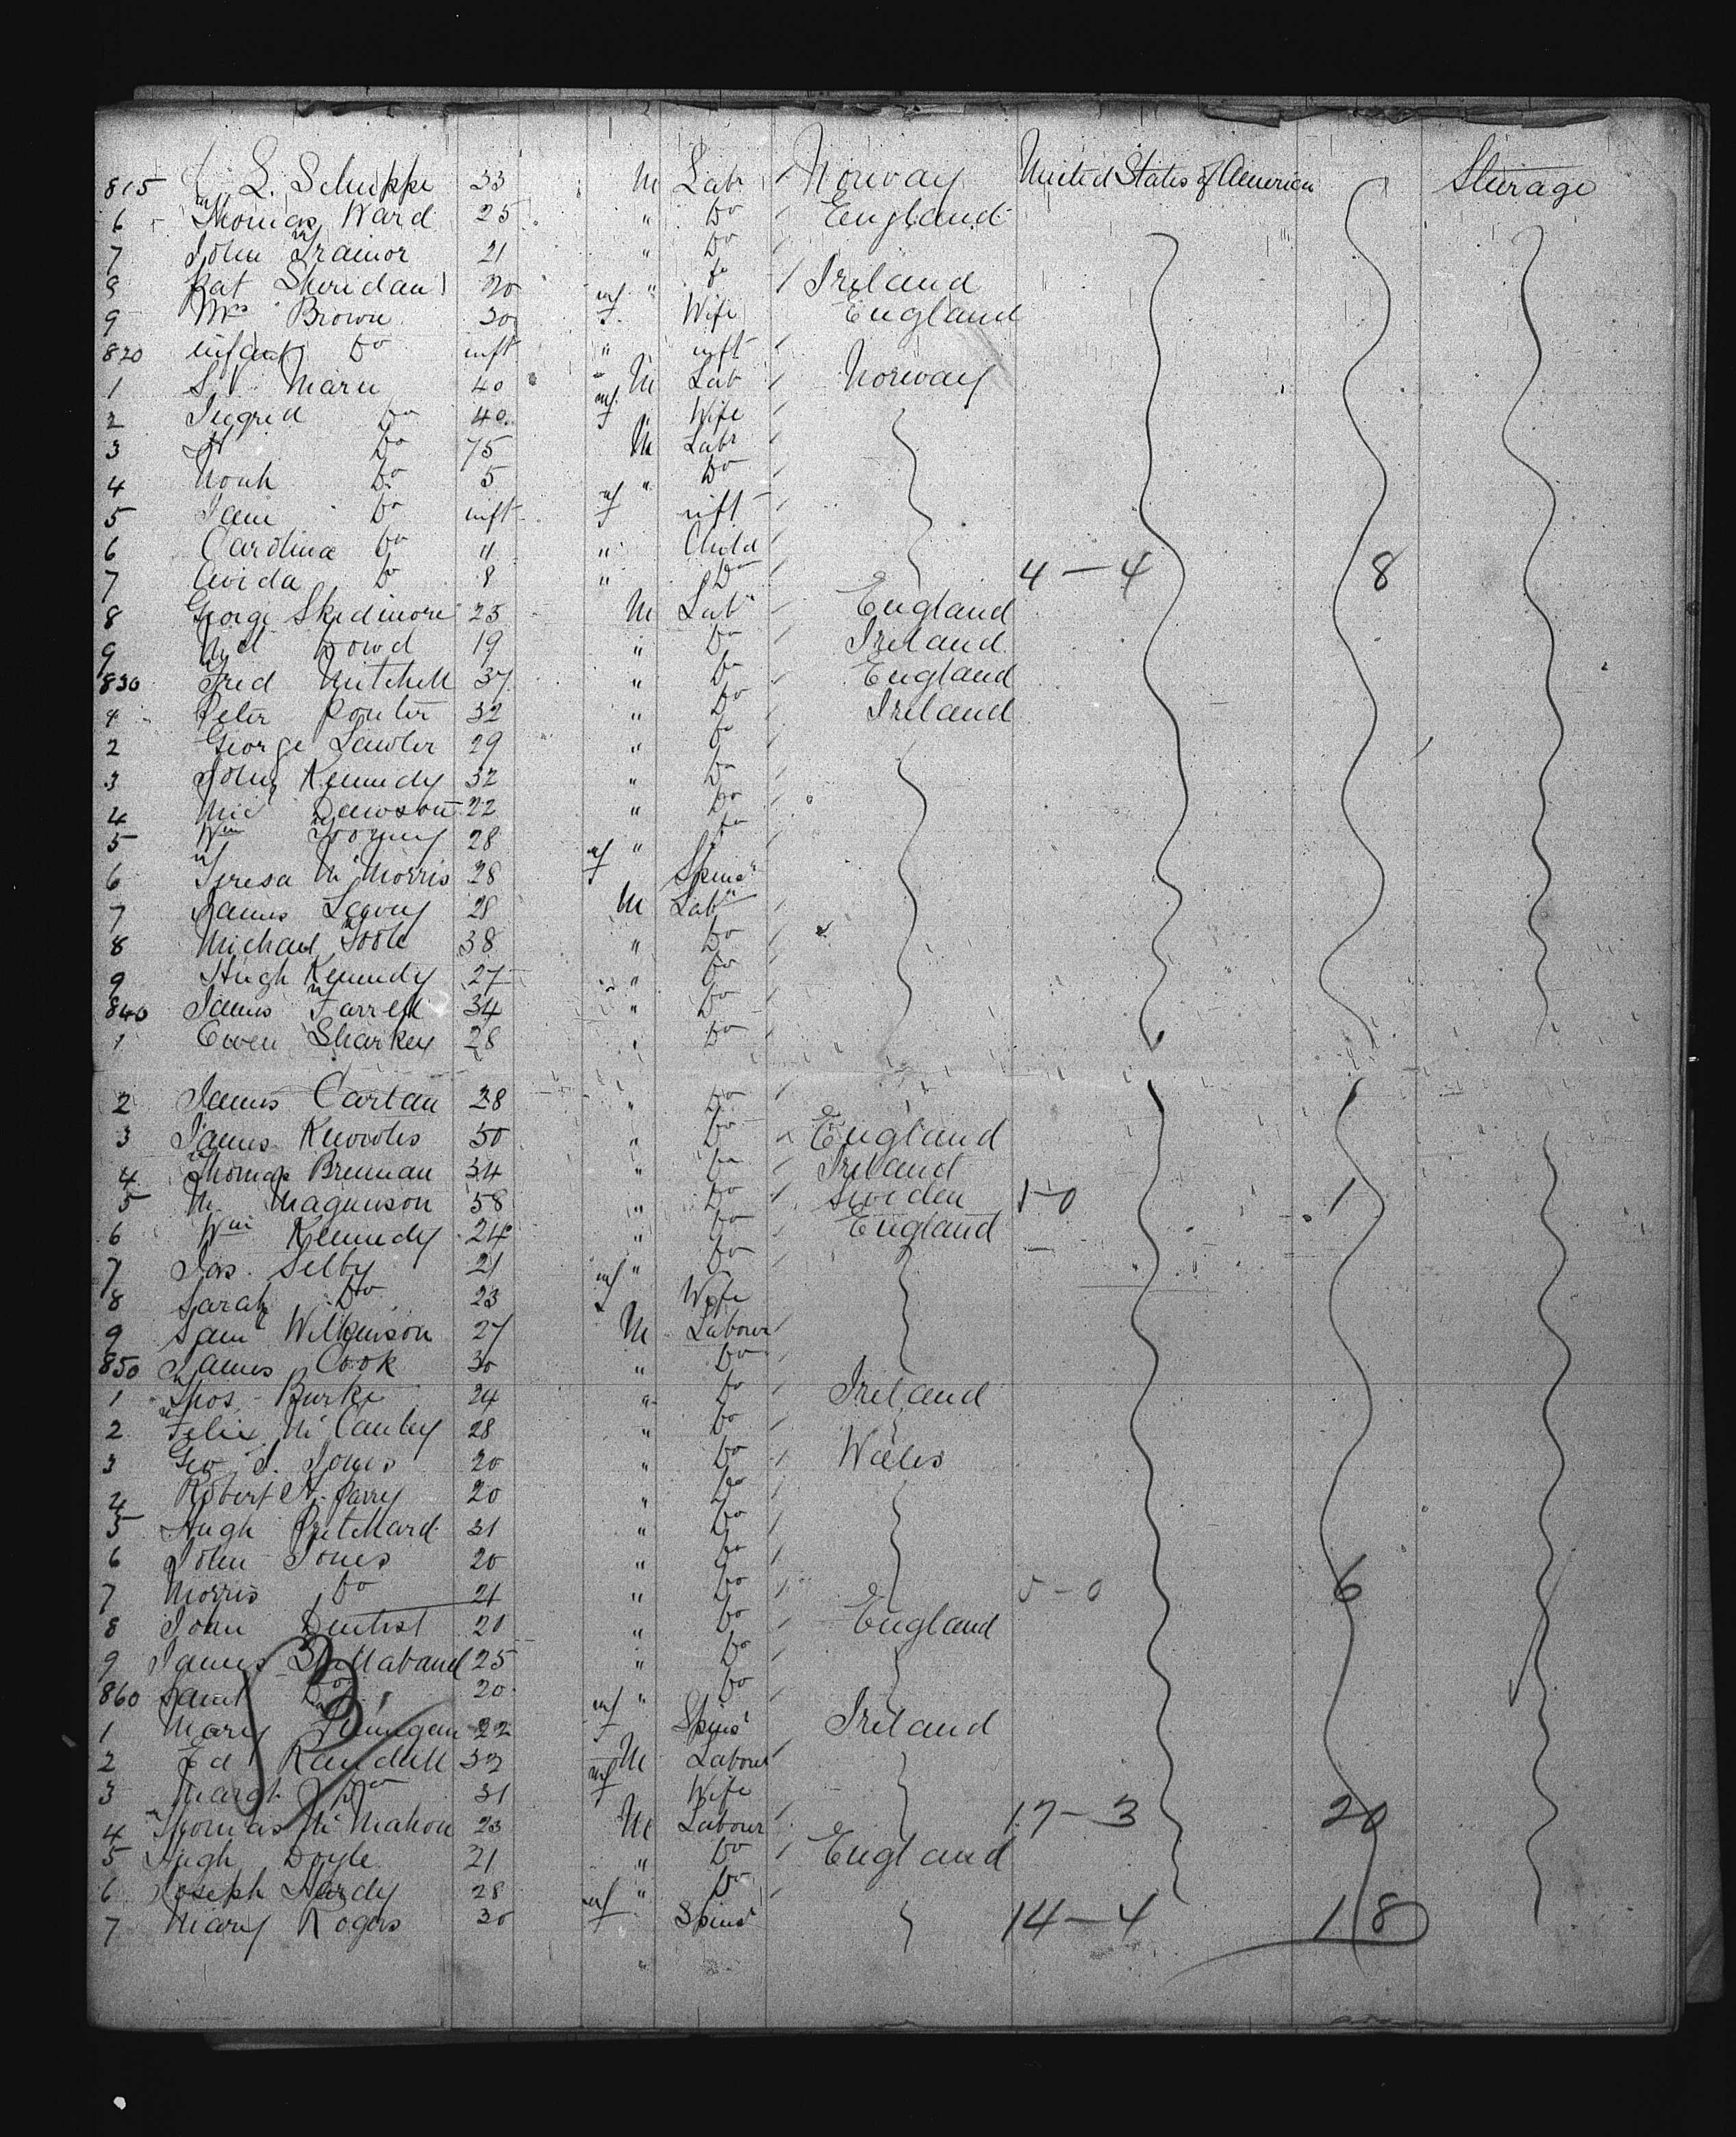 815 L. Schuppe 33 M Labr Norway United States of America Steerage
6 Thomas Ward 25 " Do England
7 John Trainor 21 " Do
8 Pat Sheridan 20 " Do Ireland
9 Mrs Brown 30 f Wife England
820 infant Do inft " inft
1 S. Marie 40 M Lab Norway
2 Ingrid Do 40 f Wife
3 Do 75 M Labr
4 Do 5 " Do
5 Do inft f inft
6 Carolina Do 11 " Child
7 Do 8 " Do 4-4 8
8 George Skidmore 25 M Labr England
9 Md Dowd 19 " Do Ireland
830 Fred Mitchell 37 " Do England
1 Peter Poulter 32 " Do Ireland
2 George Lawler 29 " Do
3 John Kennedy 32 " Do
4 Mic Dawson 22 " Do
5 Wm 28 " Do
6 Teresa Mc Morris 28 f Spinsr
7 James Leavy 28 M Labr
8 Michael Toole 38 " Do
9 Hugh Kennedy 27 " Do
840 James Farrell 34 " Do
1 Owen Sharkey 28 " Do
2 James Cartan 28 " Do
3 James Knowles 50 " Do England
4 Thomas Brennan 34 " Do Ireland
5 M. Magnuson 58 " Do Sweden 1-0 1
6 Wm Kennedy 24 " Do England
7 Jas. Selby 21 " Do
8 Sarah Do 23 f Wife
9 Saml Wilkinson 27 M Labour
850 James Cook 30 " Do
1 Thos. Burke 24 " Do Ireland
2 Felix Mc Cauley 28 " Do
3 Geo. J. Jones 20 " Do Wales
4 Robert H. Parry 20 " Do
5 Hugh Pritchard 31 " Do
6 John Jones 20 " Do
7 Morris Do 21 " Do 5-0 6
8 John Dentist 20 " Do England
9 James Shillaband 25 " Do
860 Saml Do 20 " Do
1 Mary Finnigan 22 f Spinsr Ireland
2 Ed Randell 32 M Labour
3 Margt Do 31 f Wife
4 Thomas Mc Mahon 23 M Labour 17-3 20
5 Hugh Doyle 21 " Do England
6 Joseph Hardy 28 " Do
7 Mary Rogers 30 f Spinsr 14-4 18